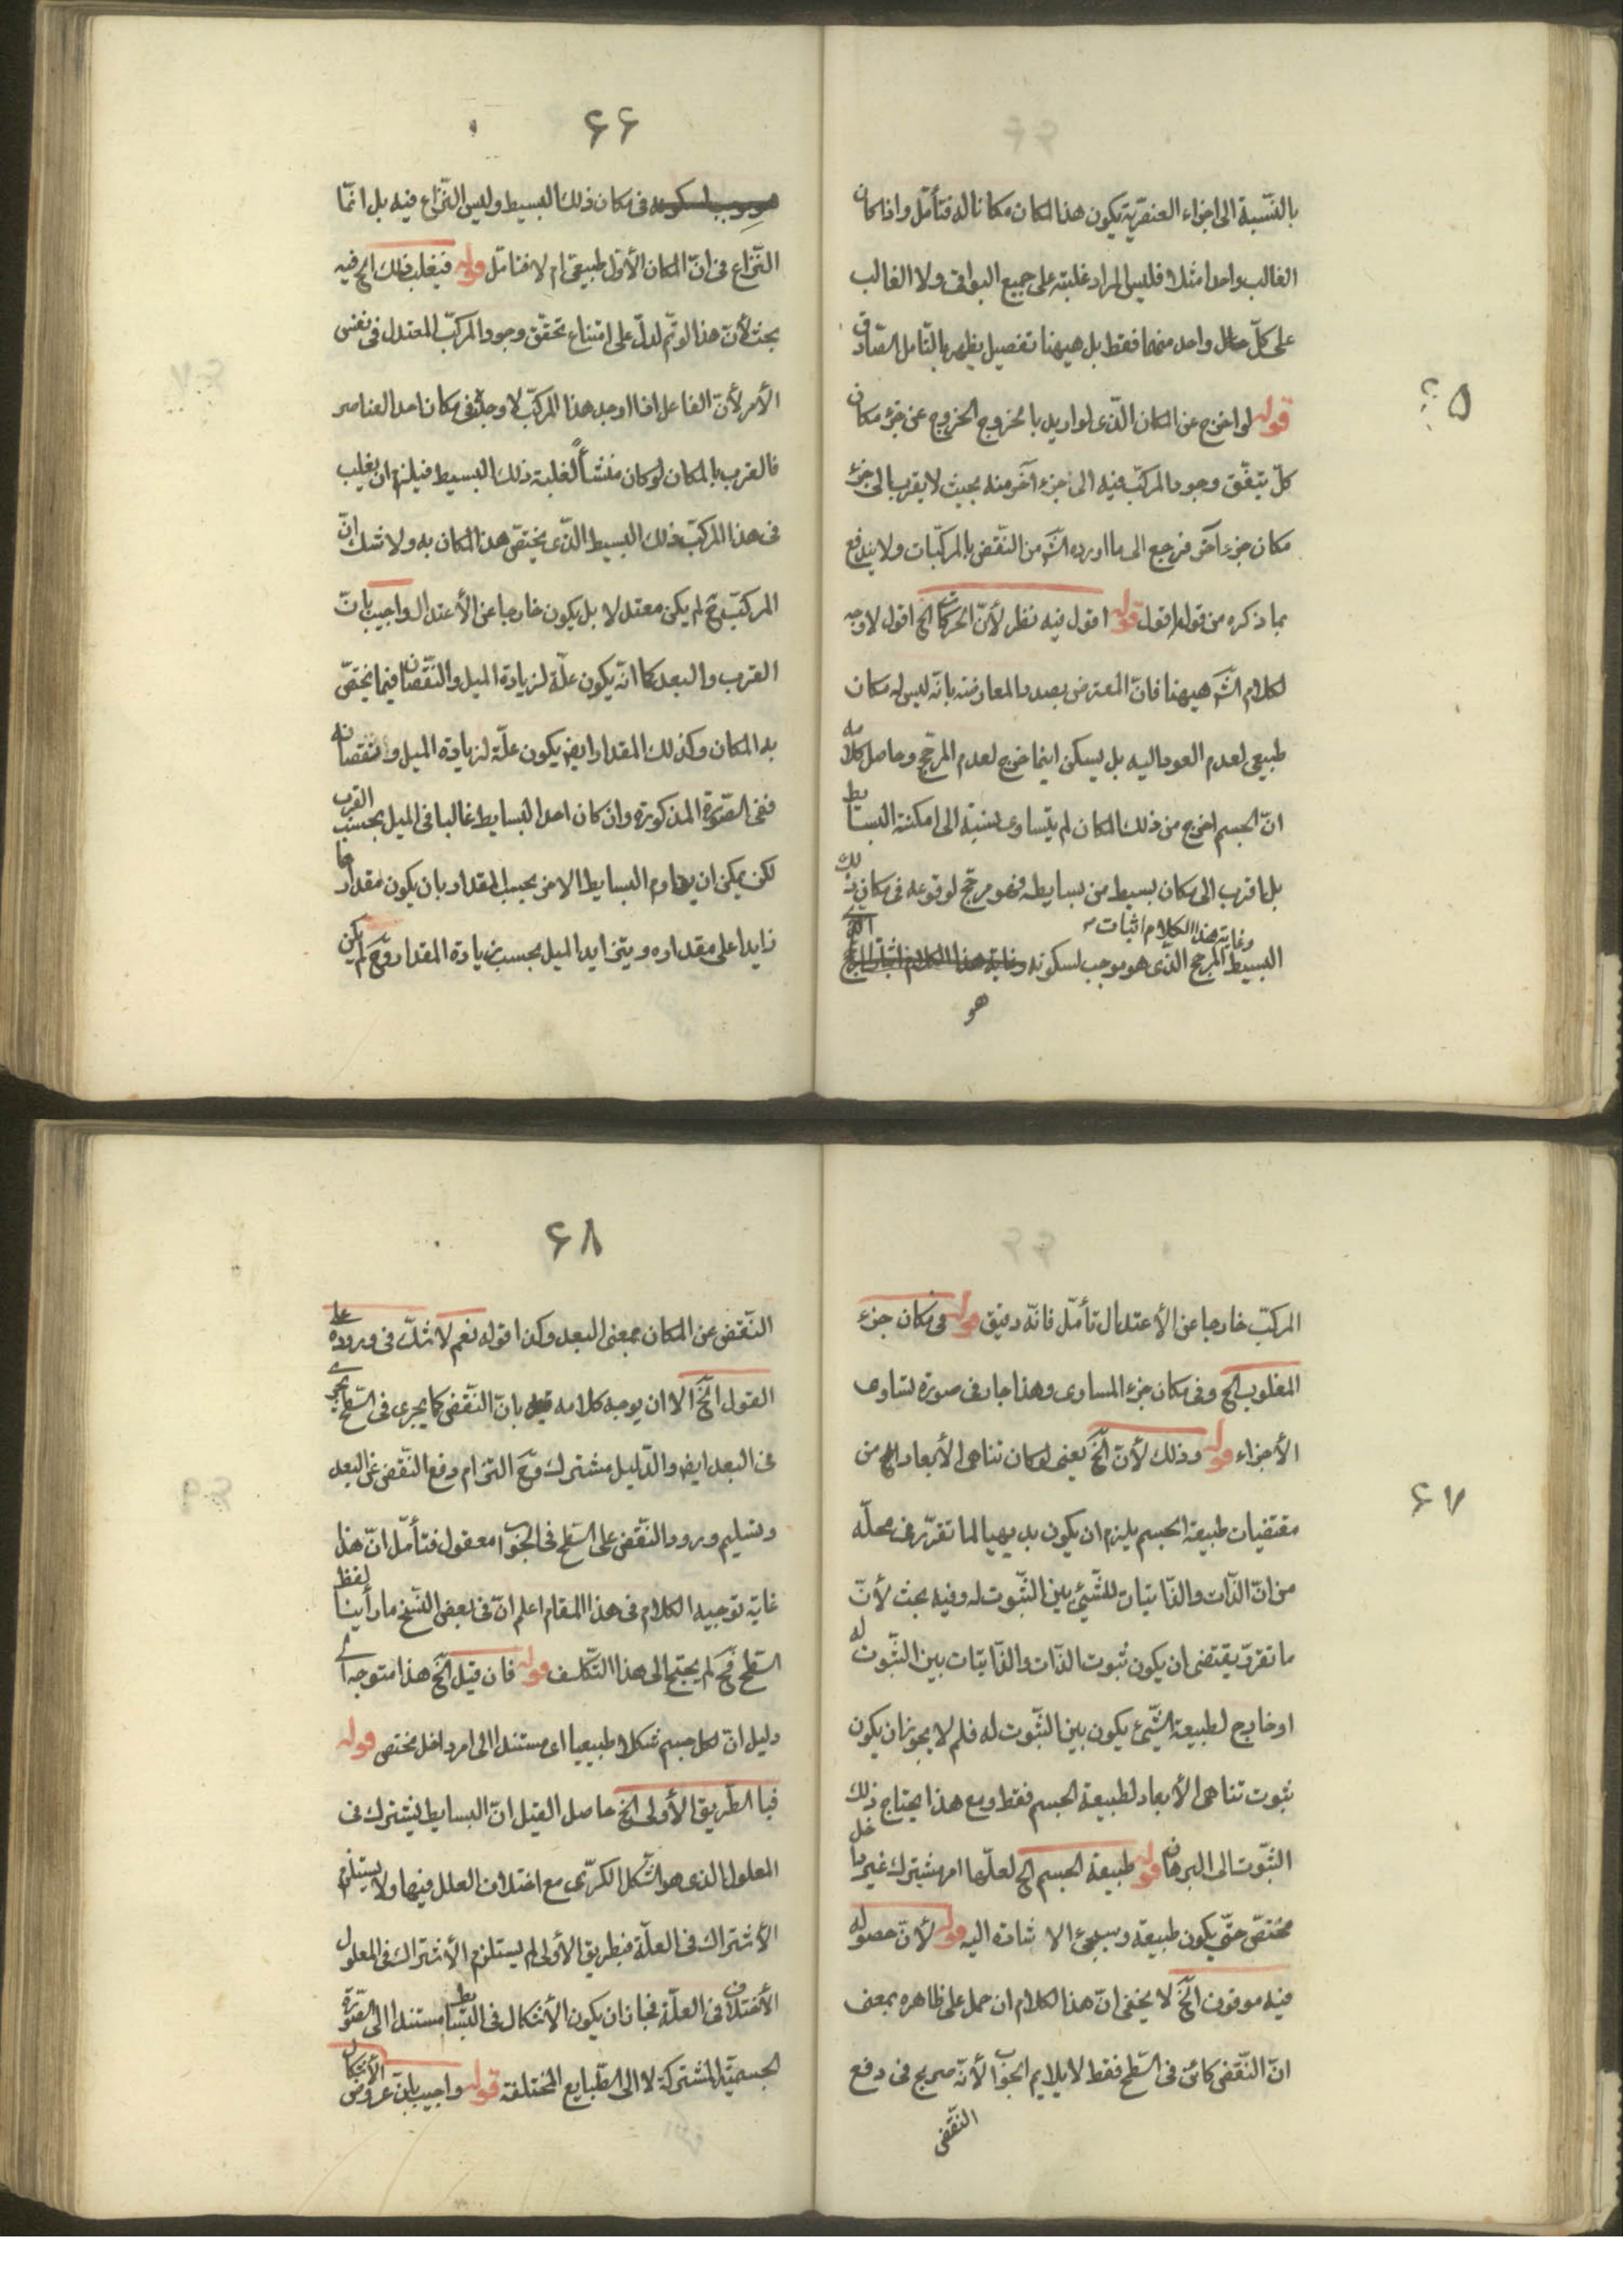 ۶۵
بالنّسبة الى اجزاء العنصريّة يكون هذا المكان مكانا له فتأمّل واذا كان
الغالب واحدا مثلا فليس المراد غلبته على جميع البواقى ولا الغالب
على كلّ واحد منهما فقط بل هيهنا تفصيل يظهر بالتّأمل الصّادق
قوله لو اخرج عن المكان الّذى لو اريد بالخروج الخروج عن جزء مكان
كلّ يتفّق وجود المركّب فيه الى جزء آخر منه بحيث لا يقرب الى جزء
مكان جزء آخر فرجع الى ما اورده الشّ من النّقض بالمركّبات ولا يندفع
بما ذكره من قوله اقول قوله اقول فيه نظر لأنّ الحركات الخ اقول لا وجه
لكلام الشّ هيهنا فانّ المعترض بصدد المعارضة بانّه ليس له مكان
طبيعى لعدم العود اليه بل يسكن اينما خرج لعدم المرجّح وحاصل كلامه
انّ الجسم اخرج من ذلك المكان لم يتساوى نسبته الى امكنة البسائط
بل ما قرب الى مكان بسيط من بسايطه فهو مرجّح لوقوعه فى مكان ذلك
البسيط وغاية هذا الكلام اثبات المرجح الّذى هو موجب لسكونه
هو
۶۶
فى مكان ذلك البسيط وليس النّزاع فيه بل انمّا
النّزاع فى انّ المكان الأوّل طبيعى ام لا فتامّل قوله فيغلب ذلك الخ فيه
بحث لأنّ هذا لو تمّ لدلّ على امتناع تحقّق وجود المركّب المعتدل فى نفس
الأمر لأنّ الفاعل اذا اوجد هذا المركّب لاوجده فى مكان احد العناصر
فالقرب بالمكان لو كان منشأً لغلبة ذلك البسيط فيلزم ان يغلب
فى هذا المركّب ذلك البسيط الّذى يختصّ هذا المكان به ولا شك انّ
المركّب ح لم يكن معتدلا بل يكون خارجا عن الأعتدال واجيب بانّ
القرب والبعد كما انّه يكون علّة لزيادة الميل والنّقصان فيما يختصّ
به المكان وكذلك المقدار ايض يكون علّة لزيادة الميل ونقصانه
ففى الصّورة المذكورة وان كان احد البسايط غالبا فى الميل بحسب القرب
لكن يمكن ان يقاوم البسايط الاخر بحسب المقدار بان يكون مقدارها
زايدا على مقداره ويتزايد الميل بحسب زيادة المقدار وح لم يكن
۶۷
المركّب خارجا عن الأعتدال تأمّل فانّه دقيق قوله فى مكان جزء
المغلوب الخ وفى مكان جزء المساوى وهذا جار فى صورة تساوى
الأجزاء قوله وذلك لأنّ الخّ يعنى لو كان تناهى الأبعاد الخ من
مقتضيات طبيعة الجسم يلزم ان يكون بديهيا لما تقرّر فى محلّه
من انّ الذّات والذّاتيات للشّيئ بيّن الثّبوت له وفيه بحث لأنّ
ما تقرّر يقتضى ان يكون ثبوت الذّات والذّاتيّات بين الثّبوت له
او خارج لطبيعة الشّيئ يكون بين الثّبوت له فلم لا يجوز ان يكون
ثبوت تناهى الأبعاد لطبيعة الجسم فقط ومع هذا يحتاج ذلك
الثّبوت الى البرهان قوله طبيعة الجسم الخ لعلّها امر مشترك غير داخل
مختصّ حتّى يكون طبيعة وسيجئ الاشادة اليه قوله لأنّ حصوله
فيه موقوف الخّ لا يخفى انّ هذا الكلام ان حمل على ظاهره بمعنى
انّ النّقض كائن فى السّطح فقط لا يلايم الجواب لأنّه صريح فى دفع
النّقض
۶۸
النّقض عن المكان بمعنى البعد وكذا قوله نعم لا شكّ فى وروده على
القول الخّ الا ان يوجه كلامه بانّ النّقض كما يجرى فى السّطح يجرى
فى البعد ايض والدّليل مشترك وح التزام دفع النّقض عن البعد
وتسليم ورود النّقض على السّطح فى الجواب معقول فتأمّل انّ هذا
غاية توجيه الكلام فى هذا المقام اعلم انّ فى بعض النّسخ ما رأينا لفظ
السّطح فح لم يحتج الى هذا التّكلّف قوله فان قيل الخّ هذا متوجه اى
دليل انّ لكل جسم شكلا طبيعيا اى مستندا الى امر داخل مختص قوله
فبالطّريق الأولى الخ حاصل القيل انّ البسايط يشترك فى
المعلول الذى هو الشّكل الكرّى مع اختلاف العلل فيها ولا يستلزم
الأشتراك فى العلّة فبطريق الأولى لم يستلزم الأشتراك فى المعلول
الأختلاف فى العلّة فجاز ان يكون الأشكال فى البسائط مستندا الى الصّورة
الجسميّة المشتركة لا الى الطّبايع المختلفة قوله واجيب بانّ عروض الأشكال